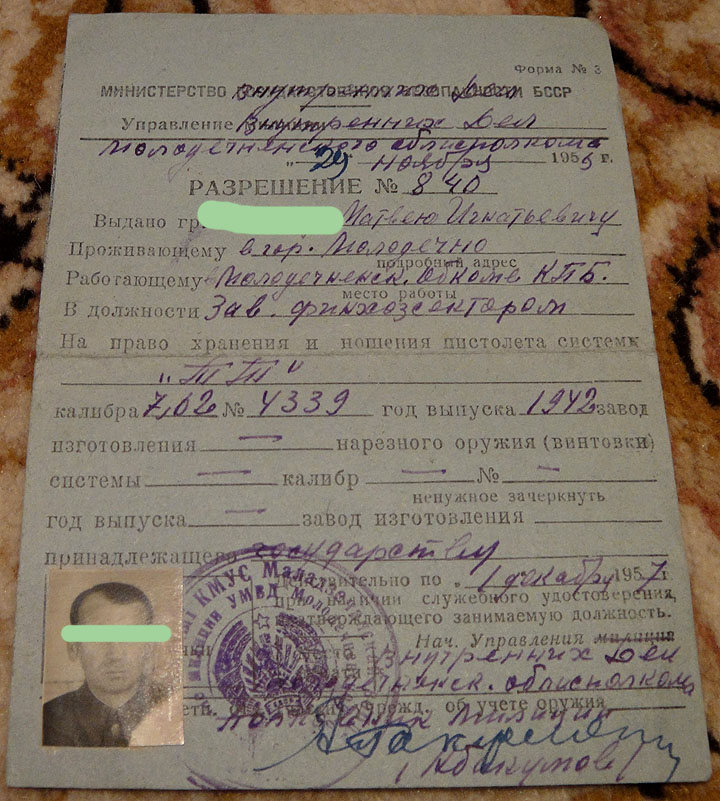 Форма № 3
МИНИСТЕРСТВО Внутренних Дел БССР
Управление Внутренних Дел
Молодечненского облисполкома
„29" ноября 1956 г.
РАЗРЕШЕНИЕ № 840
Выдано гр. Матвею Игнатьевичу
Проживающему в гор. Молодечно
подробный адрес
Работающему Молодечненск. Обкоме КПБ.
место работы
В должности Зав. финхозсектором
На право хранения и ношения пистолета системы
„ТТ"
калибра 7,62 № 4339 год выпуска 1942 завод
изготовления — нарезного оружия (винтовки)
системы — калибр — № —
ненужное зачеркнуть
год выпуска — завод изготовления
принадлежащего государству
Действительно по „1 декабря 1957 г.
при наличии служебного удостоверения,
подтверждающего занимаемую должность.
Нач. Управления милиции
Внутренних Дел
облисполкома
об учете оружия
Подполковник милиции
Абакумов
КМУС
милиции УМВД